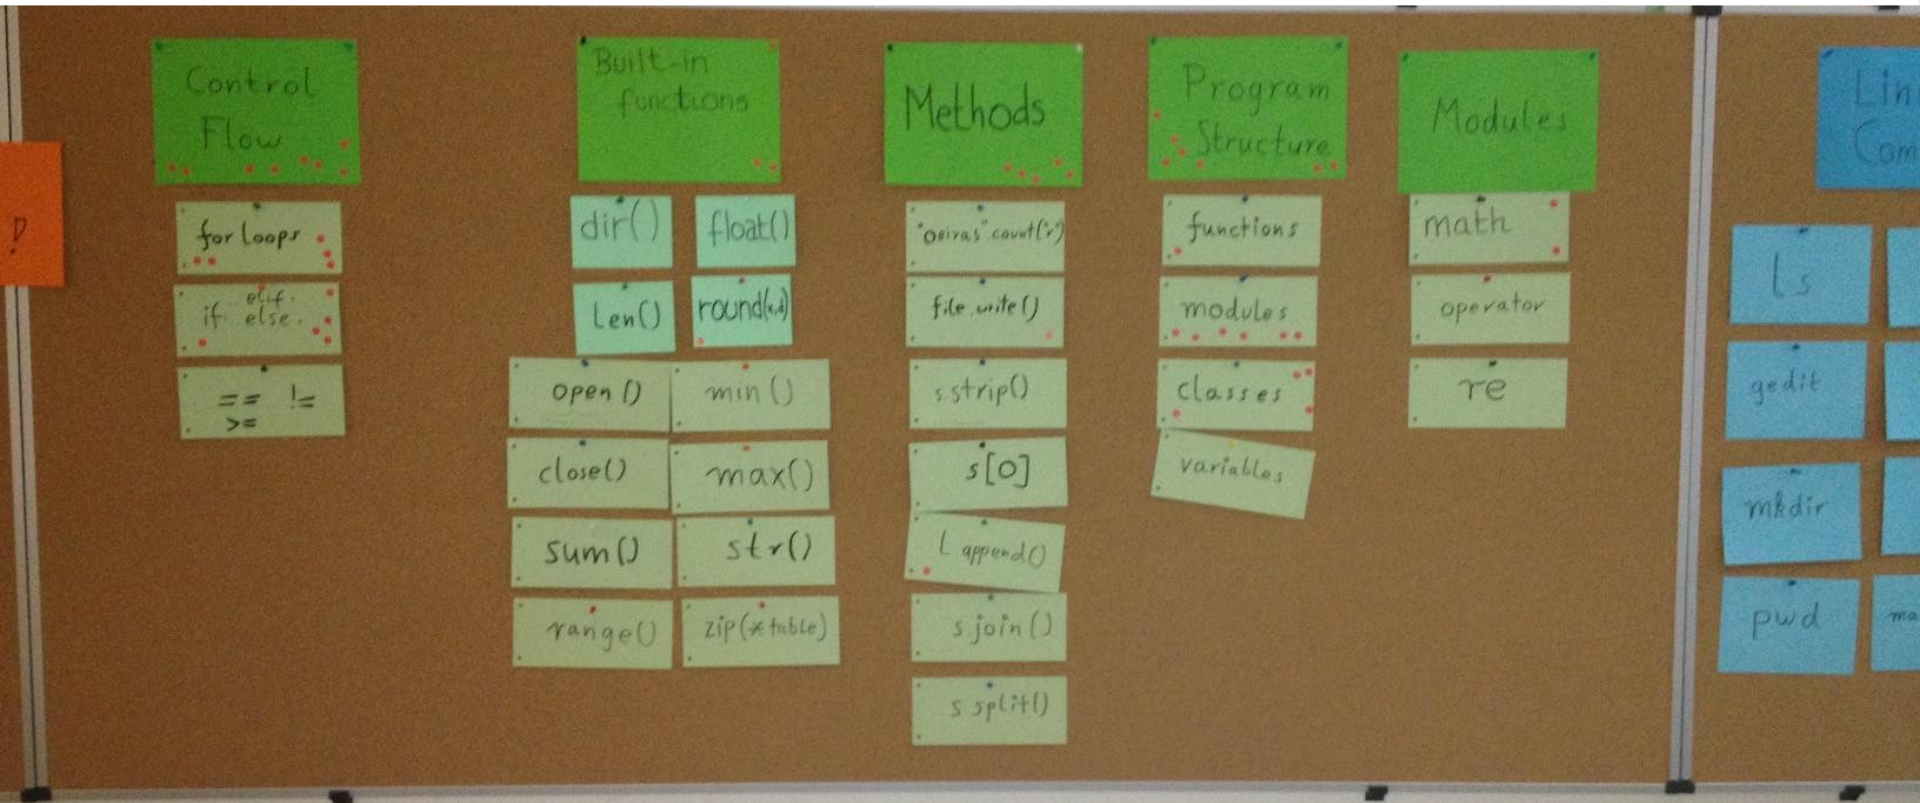 !
Control
Flow
for loops
elif.
if.. else.
== !=
>=
Built-in
functions
dir() float()
len() round(x,d)
open() min()
close() max()
sum() str()
range() zip(*table)
Methods
"oeiras".count('r')
file.write()
s.strip()
s[0]
L.append()
s.join()
s.split()
Program
Structure
functions
modules
classes
variables
Modules
math
operator
re
Lin
Com
ls
gedit
mkdir
pwd
ma